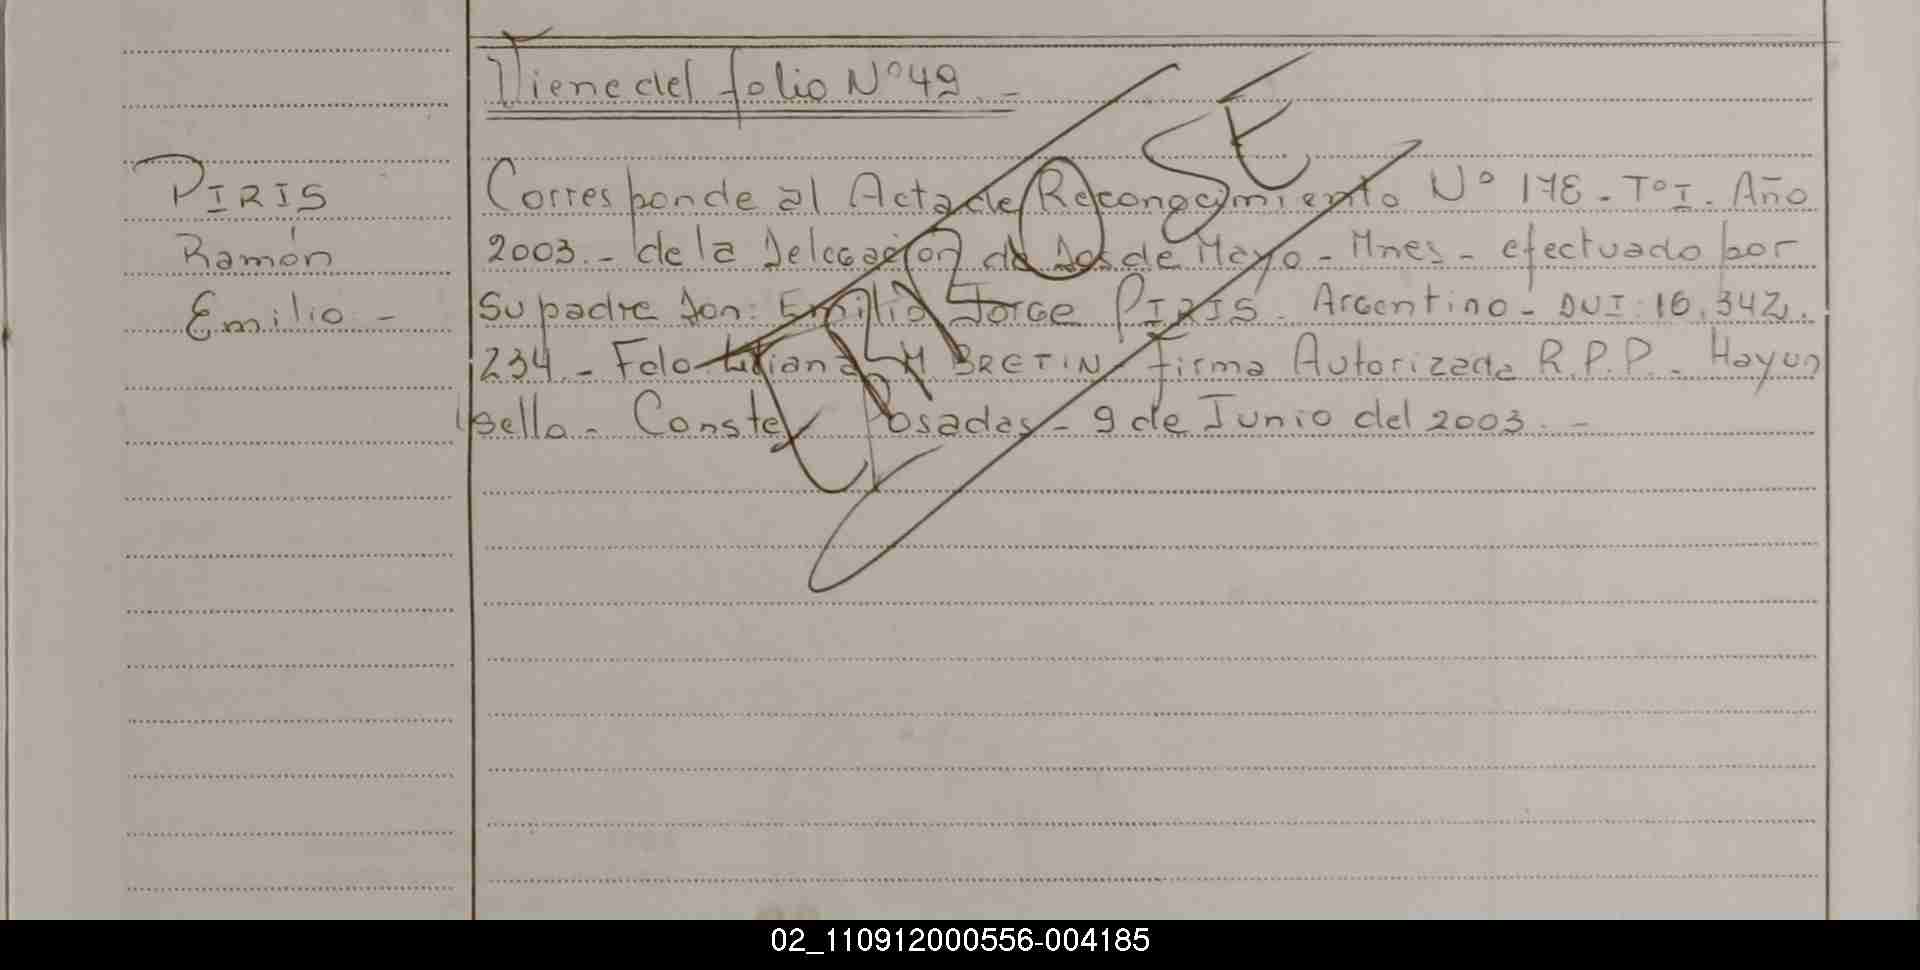 Viene del folio Nº 49. -
PIRIS
Ramón
Emilio. -
Corresponde al Acta de Reconocimiento Nº 178 - Tº I. Año
2003. - de la Delegación de Dos de Mayo - Mnes - efectuado por
su padre Don: Emilio Jorge PIRIS. Argentino - DNI: 16.342.
234. - Fdo Liliana M BRETIN - firma Autorizada R.P.P. - Hay un
sello - Conste Posadas - 9 de Junio del 2003. -
02_110912000556-004185